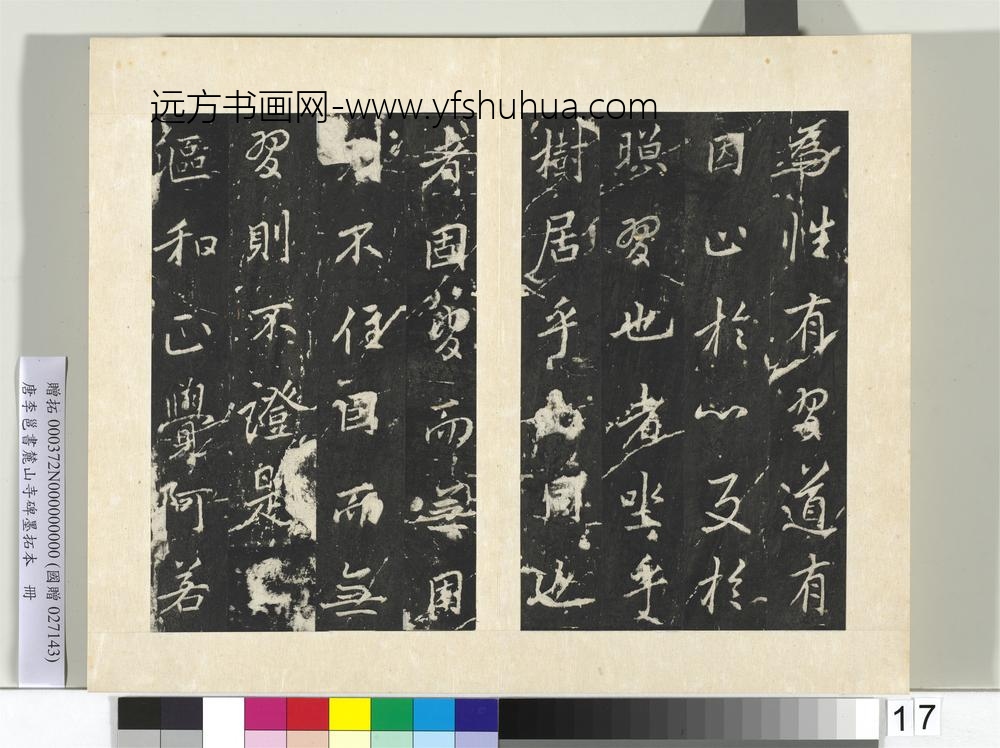 远方书画网-www.yfshuhua.com
為性有習道有
因止於心反於
習也者坐乎
樹居乎同也
者固而用
不住自而無
習則不證是
漚和正覺阿若
贈拓 000372N000000000 (國贈 027143)
唐李邕書麓山寺碑墨拓本 冊
17